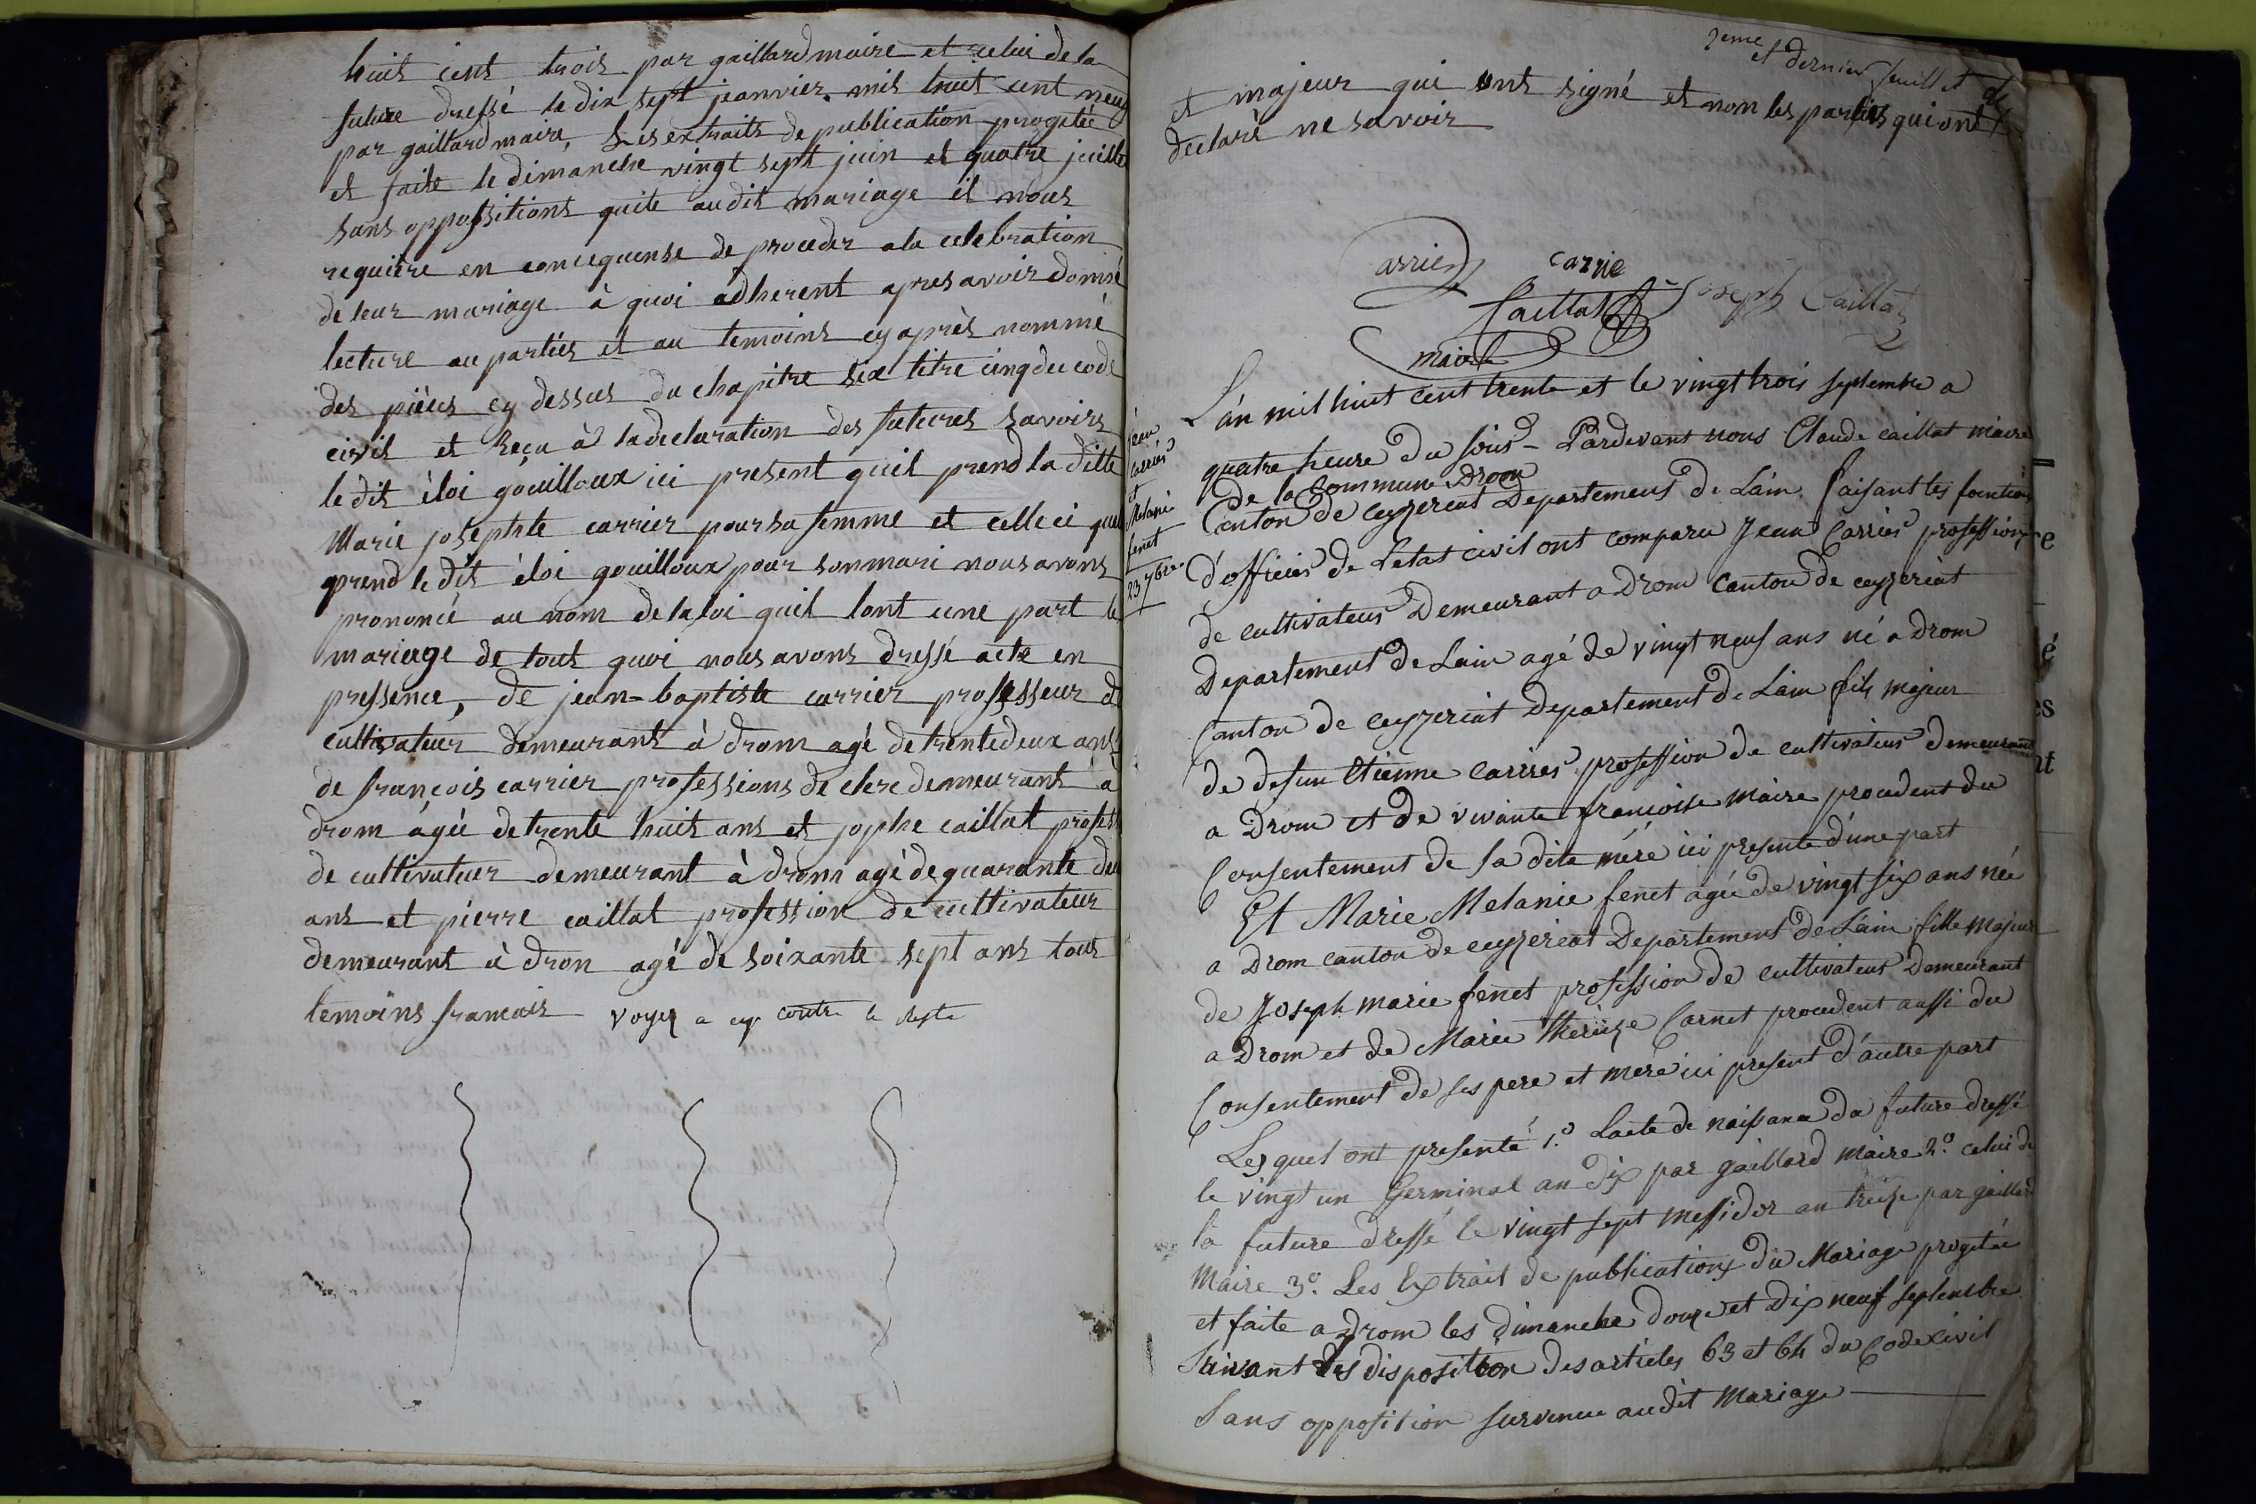 huit cent trois par gaillard maire et celui de la
future dressé le dix sept jeanvier mil huit cent neuf
par gaillard maire, Les extraits de publication progetée
et faite le dimanche vingt sept juin et quatre juillet
sans oppositions quite au dit mariage et nous
requière en concequense de proceder a la celebration
de leur mariage à quoi adherent apres avoir donné
lecture au parties et au temoins cy après nommé
des pièces cy dessus du chapitre six titre cinq du code
civil et Reçu à la declaration des futeures savoirs
le dit éloi goüilloux ici present quil prend la ditte
Marie josephte carrier pour sa femme et celle ci que
prend le dit éloi gouilloux pour son mari nous avons
prononcé au nom de la loi quil sont une part le
mariage de tout quoi nous avons dressé acte en
pressence, de jean-baptiste carrier professeur de
cultivateur demeurant à drom agé de trente deux ans
de françois carrier professions de clerc demeurant à
drom agée de trente huit ans et jophe caillat profess
de cultivateur demeurant à drom agé de quarante deu
ans et pierre caillat profession de cultivateur
demeurant à dron agé de soixante sept ans tous
temoins francais voyez a cy contre le reste
2eme et dernier feuillet de
et majeur qui ont signé et non les parties qui ont
declaré ne savoir
Carrier carrie
Caillat Joseph Caillat
maire
jean
Carrier
et
Melanie
fenet
23 7bre
L'an mil huit cent trente et le vingt trois septembre a
quatre heure du soir Pardevant nous Claude caillat maire
de la Commune Drom
Canton de ceyzeriat Departement de Lain faisant les fonctions
d'officier de Letat civil ont comparu Jean Carrier profession
de cultivateur Demeurant a Drom Canton de ceyzeriat
Departement de Lain agé de vingt neuf ans né a Drom
Canton de ceyzeriat Departement de Lain fils majeur
de defun Etienne carrier profession de cultivateur demeurant
a Drom et de vivante francoise maire procedent du
Consentement de sa dite mére ici presente d'une part
Et Marie Melanie fenet agée de vingt six ans née
a Drom canton de ceyzeriat Departement de Lain fille majeur
de Joseph marie fenet profession de cultivateur Demeurant
a Drom et de Marie therèse Carnet procedent aussi du
Consentement de ses pere et mére ici present d'autre part
Lesquel ont presenté 1.º Lacte de naissance du future dressé
le vingt un Germinal an dix par gaillard maire 2.º celui de
la future dressé le vingt sept messidor an treize par gaillard
Maire 3.º Les Extrait de publications du Mariage progetée
et faite a Drom les dimanche douze et dix neuf septembre
Suivant les disposition des articles 63 et 64 du Code civil
Sans opposition survenue audit Mariage